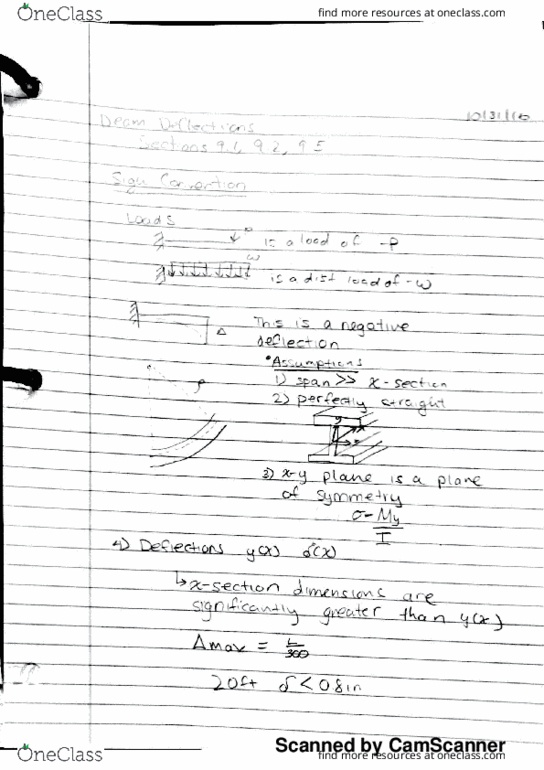 OneClass
find more resources at oneclass.com
10/31/16
Beam Deflections
Sections 9.1, 9.2, 9.5
Sign Convention
Loads
P
is a load of -P
w
is a dist load of -w
Δ
This is a negative
deflection
• Assumptions
1) span >> x-section
ρ
2) perfectly straight
y
x
z
3) x-y plane is a plane
of symmetry
σ = My
I
4) Deflections y(x) δ(x)
↳ x-section dimensions are
significantly greater than y(x)
Δmax = L/300
20ft δ < 0.8in
Scanned by CamScanner
OneClass
find more resources at oneclass.com